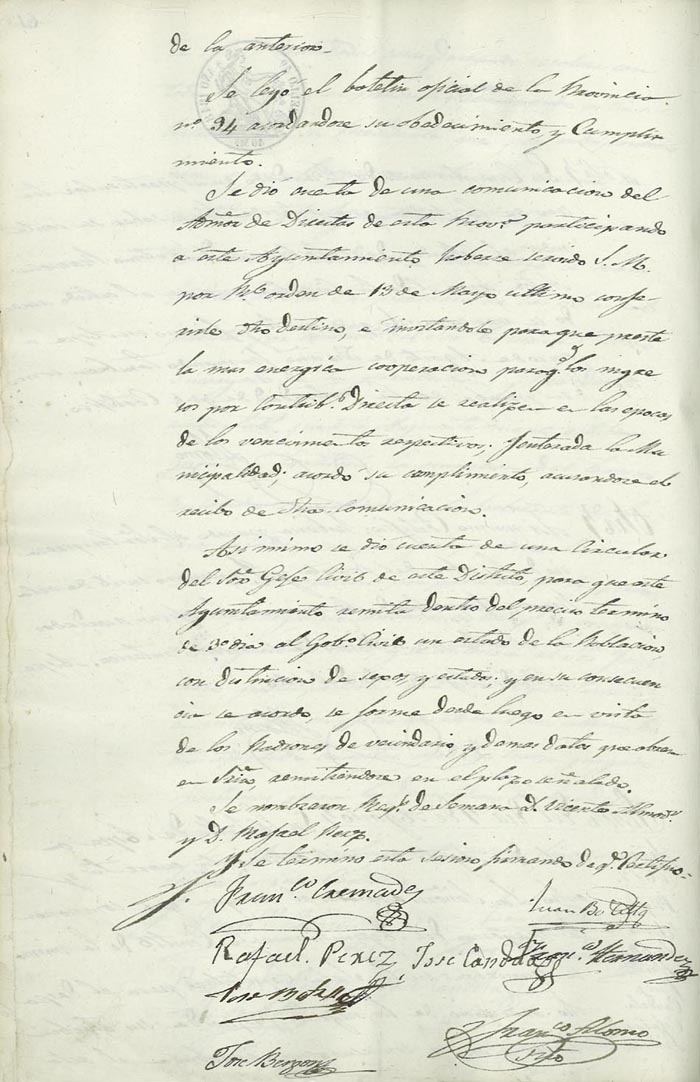 de la anterior.
Se leyo el boletin oficial de la Provincia
nº 94 acordandose su obedecimiento, y Cumplim
miento.
Se dió cuenta de una comunicacion del
Admor de Directas de esta Provª participando
a este Ayuntamiento haberse servido S. M.
por Rl orden de 13 de Mayo ultimo confe-
rirle dho destino, e insitandole para que preste
la mas energica cooperacion para q.e los ingre
sos por Contrib.s Directa se realizen en las epocas
de los vencimientos respectivos; Enterada la Mu
nicipalidad; acordo su complimiento, acusandose el
recibo de dha comunicacion.
Asi mimo se dio cuenta de una Circular
del Sor Gefe Civil de este Distrito, para que este
Ayuntamiento remita dentro del preciso termino
de 3º dia al Gobº Civil un estado de la Poblacion,
con distincion de sexos, y estados; y en su consecuen
cia se acordo, se forme desde luego en vista
de los Padrones de vecindario, y demas datos que obran
en Sria, remitiendose en el plazo señalado.
Se nombraron Reg.s de Semana D. Vicente
y D. Rafael Perez.
Y se termino esta sesion firmando de q.e Certifico.
Fran.co Cremades
Juan Botella
Rafael Perez Jose Candela Fran.co Hernandez
Jose Botella
Franco Alonso
Srio
Jose